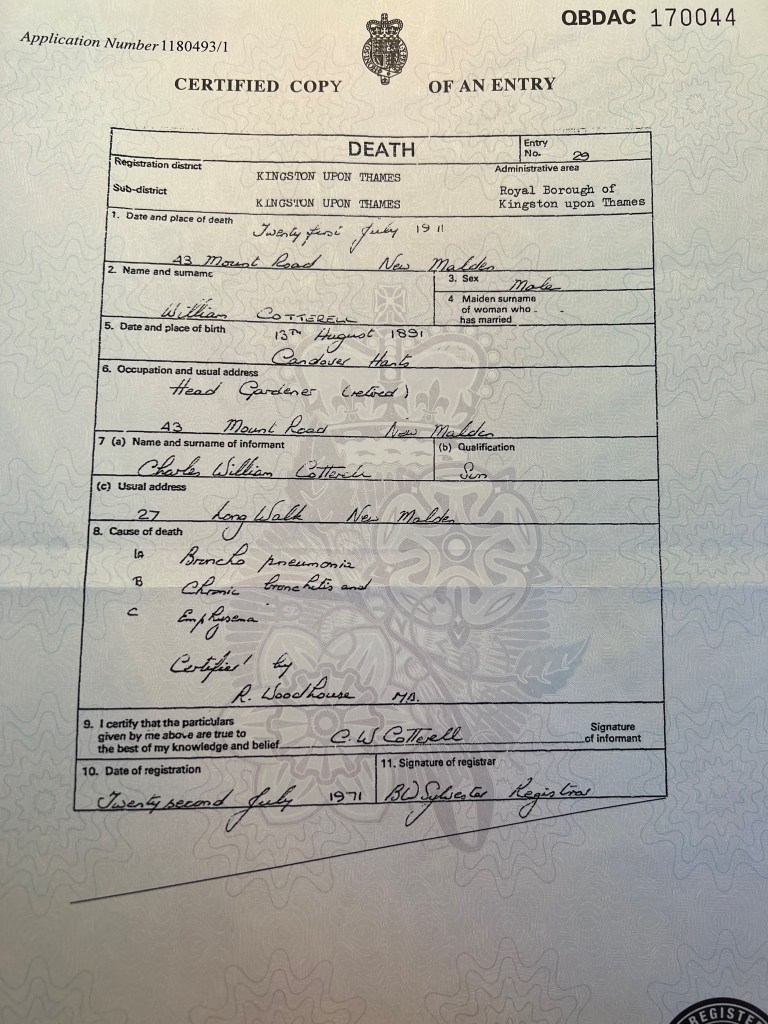 QBDAC 170044
Application Number 1180493/1
CERTIFIED COPY OF AN ENTRY
DEATH
Entry No. 29
Registration district KINGSTON UPON THAMES
Administrative area
Sub-district KINGSTON UPON THAMES
Royal Borough of Kingston upon Thames
1. Date and place of death
Twenty first July 1911
43 Mount Road New Malden
2. Name and surname
William COTTERELL
3. Sex
Male
4 Maiden surname of woman who has married
5. Date and place of birth
13TH August 1891
Candover Hants
6. Occupation and usual address
Head Gardener (retired)
43 Mount Road New Malden
7 (a) Name and surname of informant
Charles William Cotterell
(b) Qualification
Son
(c) Usual address
27 Long Walk New Malden
8. Cause of death
IA Broncho pneumonia
B Chronic bronchitis and
C Emphysema
Certified by
R. Woodhouse MB.
9. I certify that the particulars
given by me above are true to
the best of my knowledge and belief
C. W Cotterell
Signature of informant
10. Date of registration
Twenty second July 1971
11. Signature of registrar
BW Sylvester Registrar